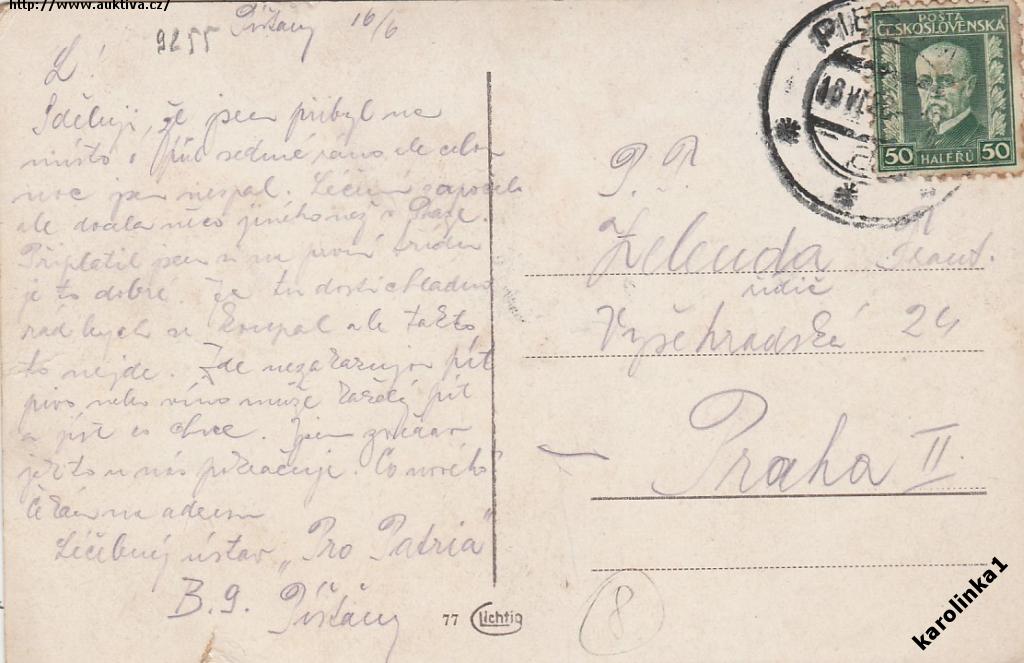 http://www.auktiva.cz/
Píšťany 16/6
9255
L!
Sděluji, že jsem přibyl na
místo o půl sedmé ráno ale celou
noc jsem nespal. Léčení započalo
ale docela něco jiného než v Praze.
Připlatil jsem si na první třídu
je to dobré. Je tu dosti chladno
rád bych se koupal ale takto
to nejde. Zde nezakazují pít
pivo nebo víno může každý pít
a jíst co chce. Jsem zvědav
jak to u nás pokračuje. Co nového
čekám na adresu
Léčebný ústav „Pro Patria"
B. 9. Píšťany
77 Lichtig
POSTA
ČESKOSLOVENSKÁ
50 HALÉŘŮ 50
PIEŠ
P. T.
Zelenda Frant.
řidič
Vyšehradská 24
Praha II
8
karolinka1